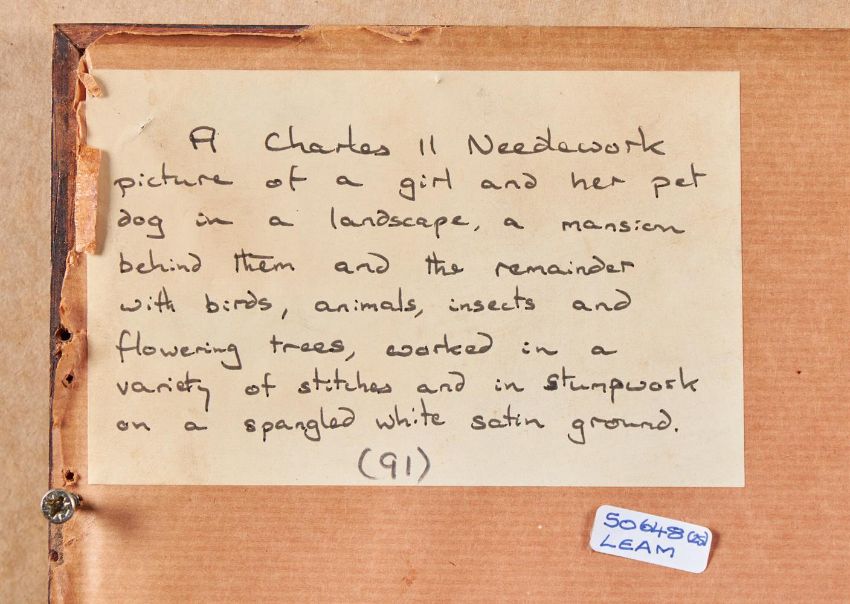 A Charles II Needlework
picture of a girl and her pet
dog in a landscape, a mansion
behind them and the remainder
with birds, animals, insects and
flowering trees, worked in a
variety of stitches and in stumpwork
on a spangled white satin ground.
(91)
50648 (25)
LEAM